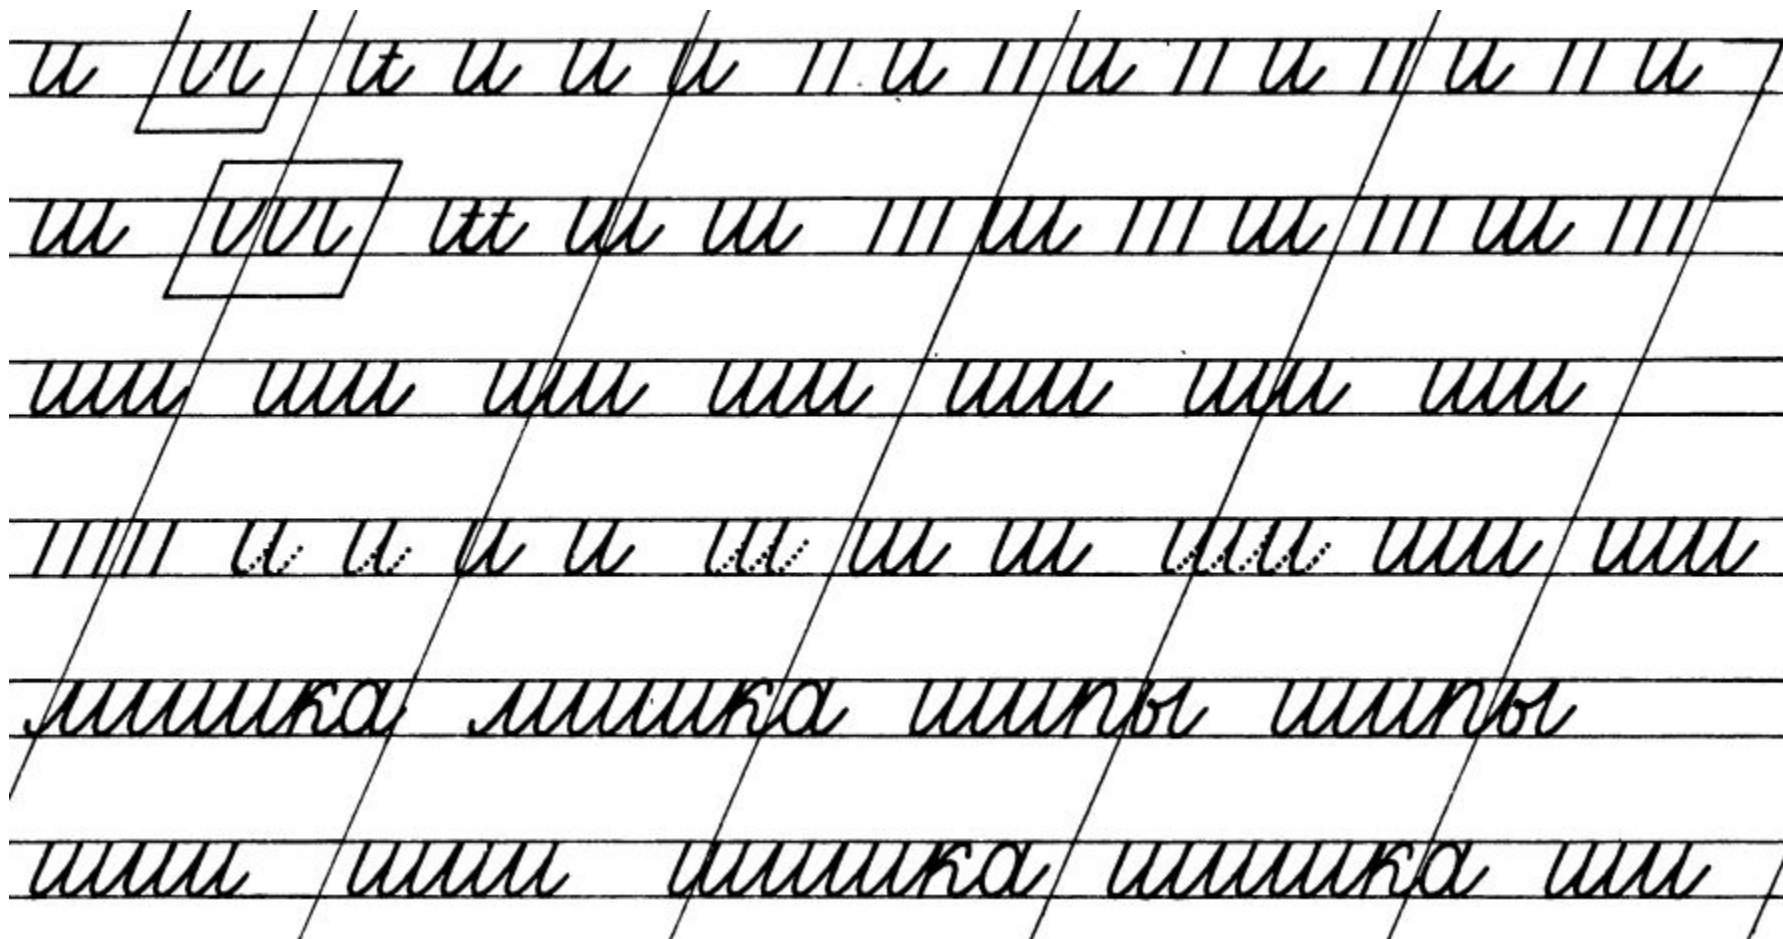 и и и и и и и и и и и и
ш ш ш ш ш ш ш ш
ши ши ши ши ши ши ши
и и и и ш ш ш ши ши ши
мишка мишка шипы шипы
шш шш шишка шишка ши